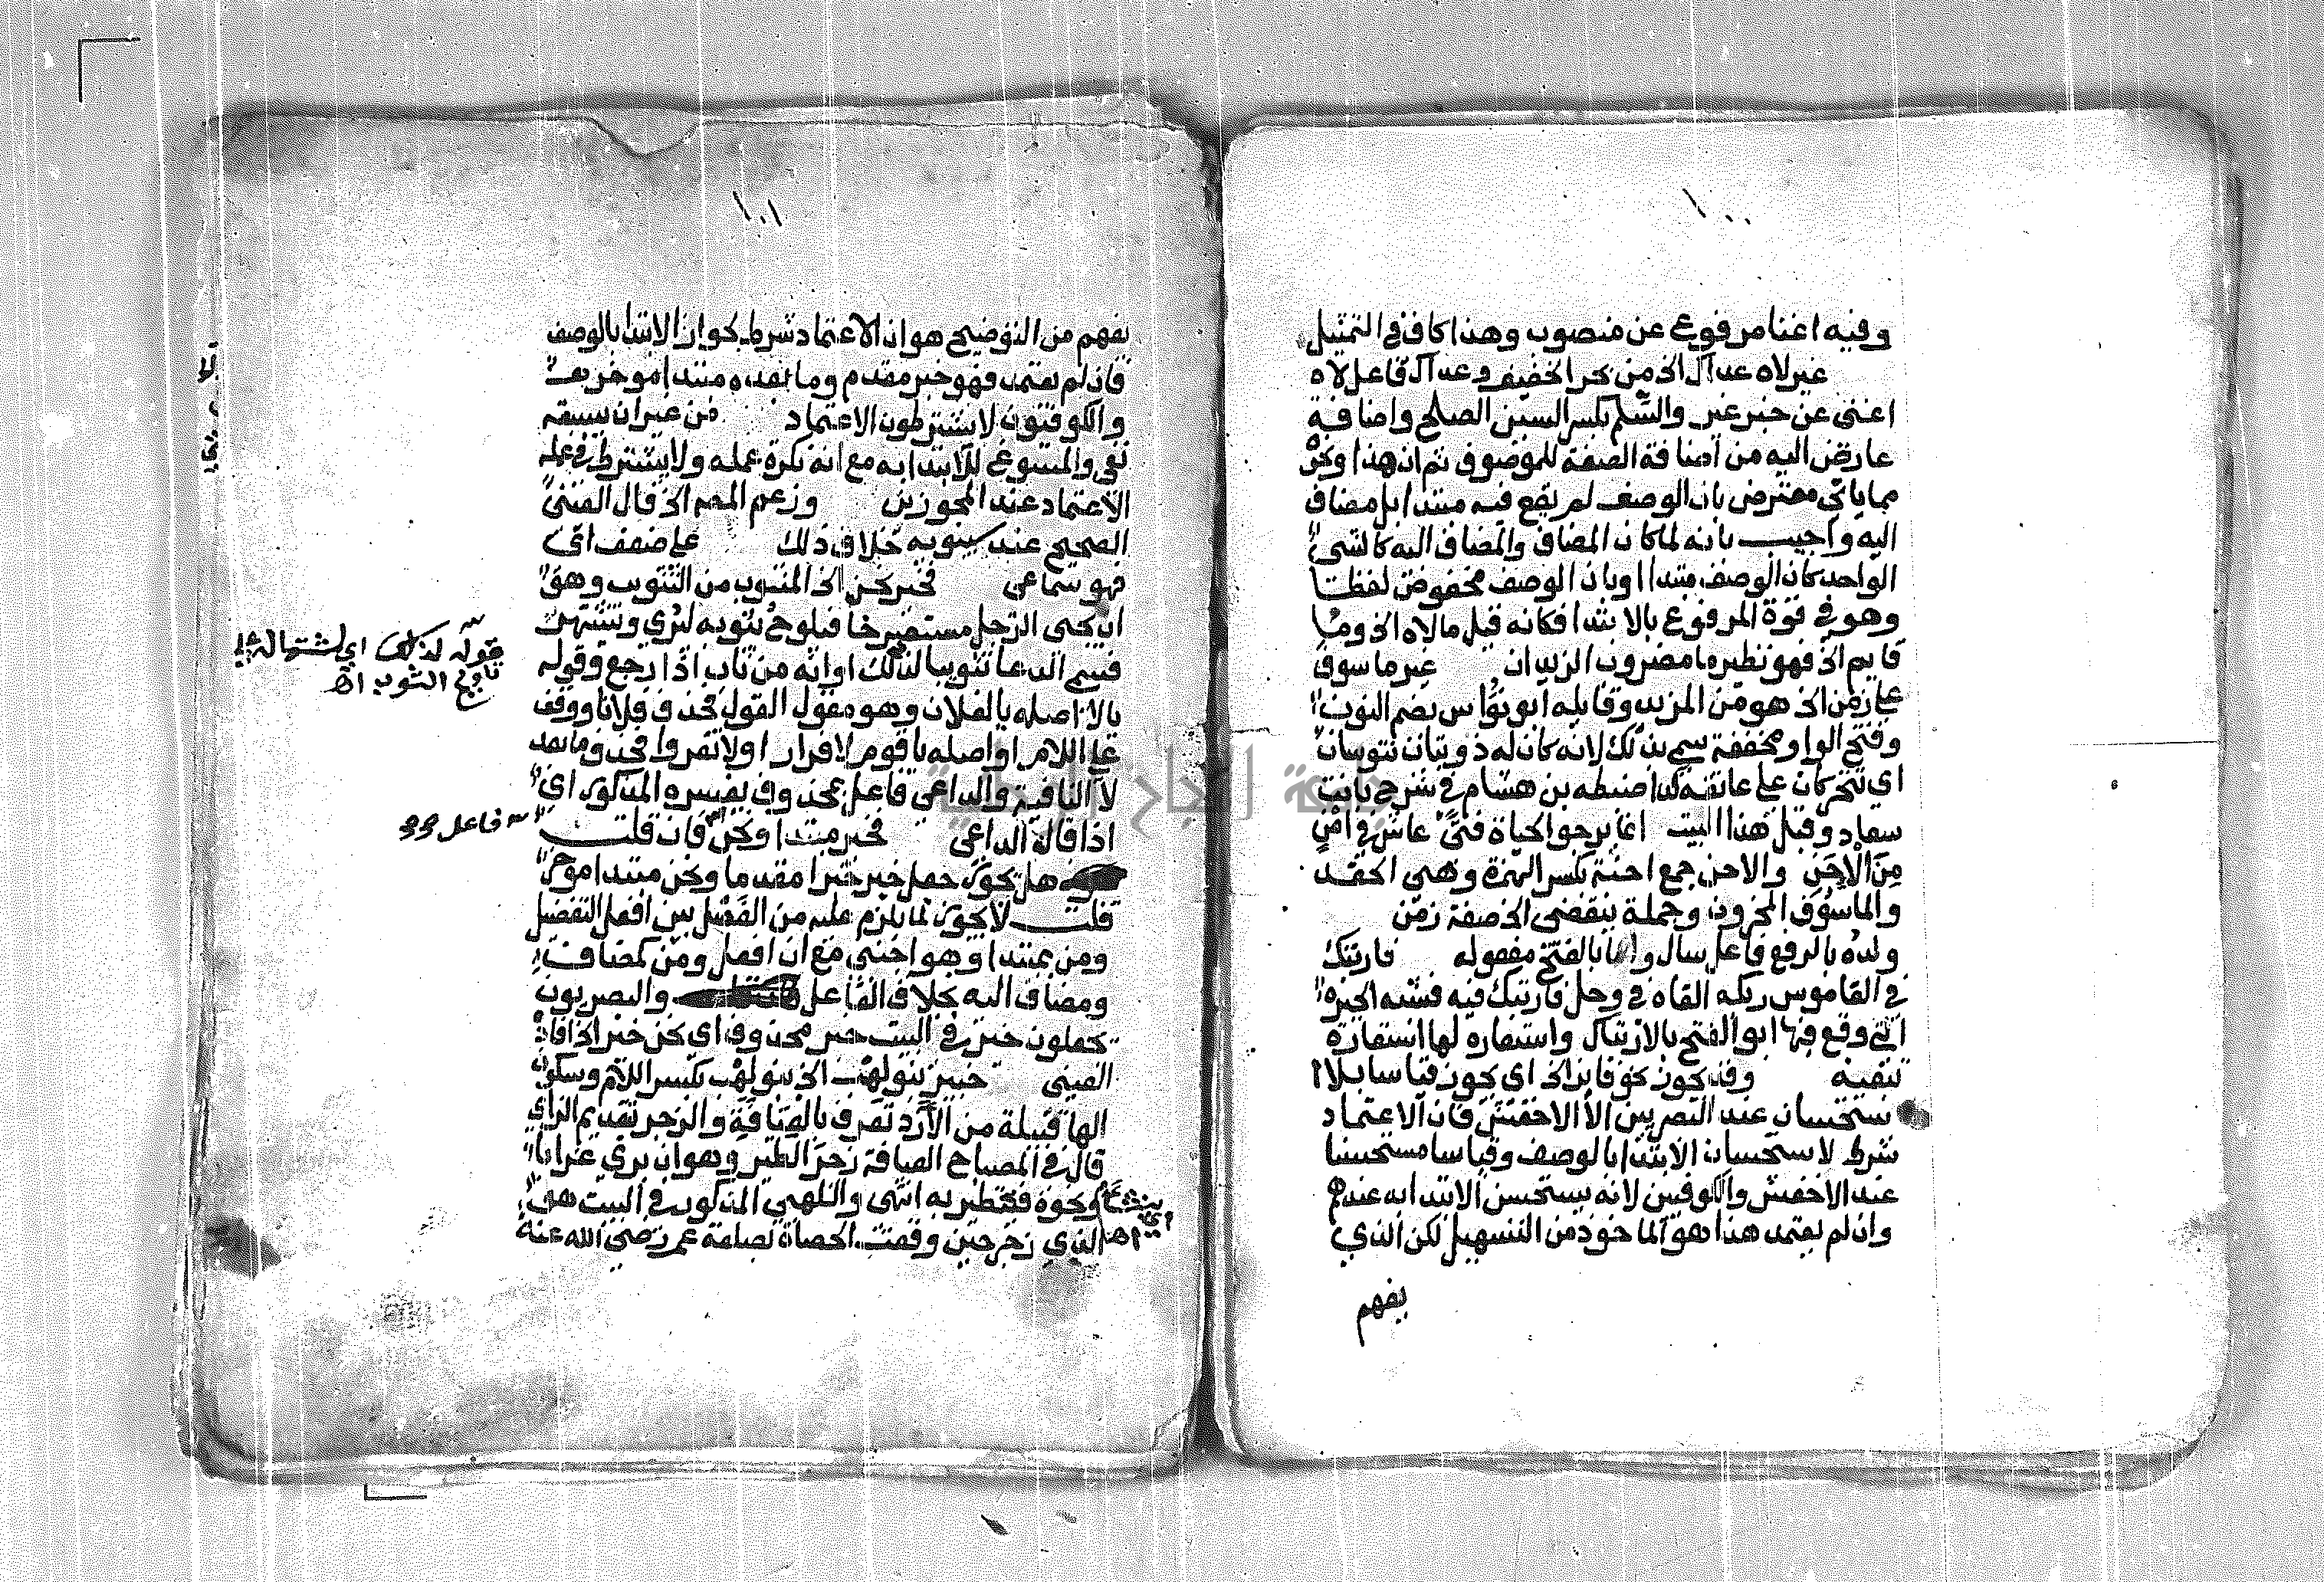 ١٠٠
وفيه اغنا مرفوع عن منصوب وهذا كاف في التمثيل
غير لاه عداك الخ من نحر الخفيف وعداك فاعل لاه
اغنى عن خبر غير والسلم بكسر السين الصلح واضافة
عارض اليه من اضافة الصفة للموصوف ثم ان هذا ونحوه
مما ياتي معترض بان الوصف لم يقع فيه مبتدا بل مضاف
اليه واجيب بانه لما كان المضاف والمضاف اليه كالشيء
الواحد كان الوصف مبتدا وبان الوصف مخفوض لفظا
وهو في قوة المرفوع بالابتدا فكانه قيل ما لاه الخ وما
قايم الخ فهو نظير ما مضروب الزيدان غير ماسوف
على زمن الخ هو من المزيد وقايله ابو نواس بضم النون
وفتح الواو مخففة سمي بذلك لانه كان له ذؤبتان تنوسان
اي تتحركان على عاتقه كذا ضبطه بن هشام في شرح بانت
سعاد وقبل هذا البيت انما يرجوا الحياة فتى عاش في امن
من الاحن والاحن جمع احنة بكسر الهمزة وهي الحقد
والماسوف المحزون وجملة ينقضي الخ صفة زمن
ولده بالرفع فاعل سال واما بالفتح مفعوله فارتبك
في القاموس ربكه القاه في وحل فارتبك فيه فشبه الحيرة
التي وقع فيها ابو الفتح بالارتباك واستعاره لها استعارة
تبعية وقد يكون نحو فايز الخ اي يكون قياسا بلا
ستحسان عند البصريين الا الاخفش فان الاعتماد
شرط لاستحسان الابتدا بالوصف وقياسا مستحسنا
عند الاخفش والكوفيين لانه يستحسن الابتدا به عندهم
وان لم يعتمد هذا هو الماخوذ من التسهيل لكن الذي
يفهم
١٠١
يفهم من التوضيح هو ان الاعتماد شرط لجواز الابتدا بالوصف
فان لم يعتمد فهو خبر مقدم وما بعده مبتدا موخر
والكوفيون لا يشترطون الاعتماد من غير ان يسبقه
نفي والمسوغ للابتدا به مع انه نكرة عمله ولا يشترط في عمله
الاعتماد عند المجوزين وزعم المص الخ قال العيني
الصحيح عند سيبويه خلاف ذلك على ضعف اي
فهو سماعي فخير نحن الخ المثوب من التثويب وهو
ان يجي الرجل مستصرخا فيلوح بثوبه ليري ويشتهر
فسمي الدعا تثويبا لذلك او انه من ثاب اذا رجع وقوله
يالا اصله يا لفلان وهو مقول القول فحذف فلانا ووقف
على اللام او اصله يا قوم لا فرار او لا تفروا فحذف ما بعد
لا النافية والداعي فاعل بمحذوف يفسره المذكور اي
اذا قال الداعي فخير مبتدا ونحن فاعل فان قلت
هل يجوز جعل خير خبرا مقدما ونحن مبتدا موخر
قلت لا يجوز لما يلزم عليه من الفصل بين افعل التفضيل
ومن بمبتدا وهو اجنبي مع ان افعل ومن كمضاف
ومضاف اليه بخلاف الفاعل والبصريون
يجعلون خير في البيت خبر محذوف اي نحن خير الخ افاده
العيني خبير بنو لهب الخ بنو لهب بكسر اللام وسكون
الها قبيلة من الازد تعرف بالعيافة والزجر بتقديم الزاي
قال في المصباح العيافة زجر الطير وهو ان يري غرابا
ونحوه فيتطير به انتهى واللهبي المذكور في البيت هو
الذي زجر حين وقعت الحصاة بصلعة عمر رضي الله عنه
قوله لذلك اي لشتهاله
التثويب اه